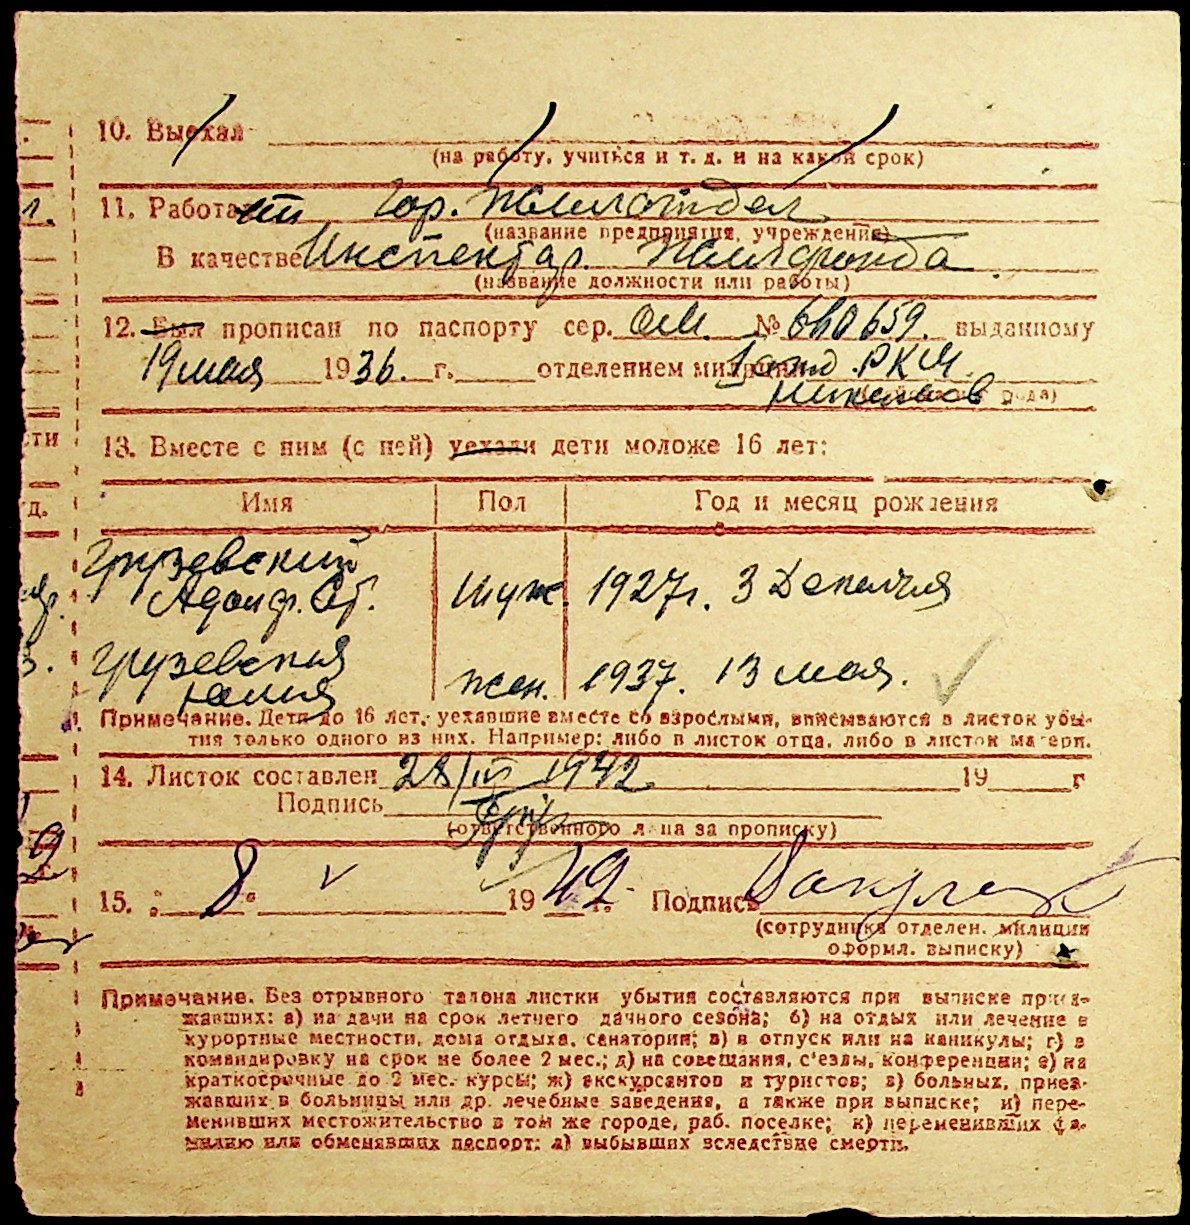 10. Выехал
(на работу, учиться и т. д. и на какой срок)
11. Работает Гор. Жилотдел
(название предприятия, учреждения)
В качестве Инспектор. Жилфонда
(название должности или работы)
12. Был прописан по паспорту сер. ОМ. № 610659. выданному
19 мая 1936. г. отделением милиции 1 отд. РКМ.
Николаев
13. Вместе с ним (с ней) уехали дети моложе 16 лет:
Имя Пол Год и месяц рождения
Грузевский
Адольф. Муж. 1927г. 3 Декабря
Грузевская
Юлия жен. 1937. 13 мая.
Примечание. Дети до 16 лет, уехавшие вместе со взрослыми, вписываются в листок убы-
тия только одного из них. Например: либо в листок отца, либо в листок матери.
14. Листок составлен 28/IV 1942 19 г
Подпись
(ответственного лица за прописку)
15. 8 1942 г. Подпись
(сотрудника отделен. милиции
оформл. выписку)
Примечание. Без отрывного талона листки убытия составляются при выписке приез-
жавших: а) на дачи на срок летнего дачного сезона; б) на отдых или лечение в
курортные местности, дома отдыха, санатории; в) в отпуск или на каникулы; г) в
командировку на срок не более 2 мес.; д) на совещания, с'езды, конференции; е) на
краткосрочные до 2 мес. курсы; ж) экскурсантов и туристов; з) больных, приез-
жавших в больницы или др. лечебные заведения, а также при выписке; и) пере-
менивших местожительство в том же городе, раб. поселке; к) переменивших фа-
милию или обменявших паспорт; л) выбывших вследствие смерти.